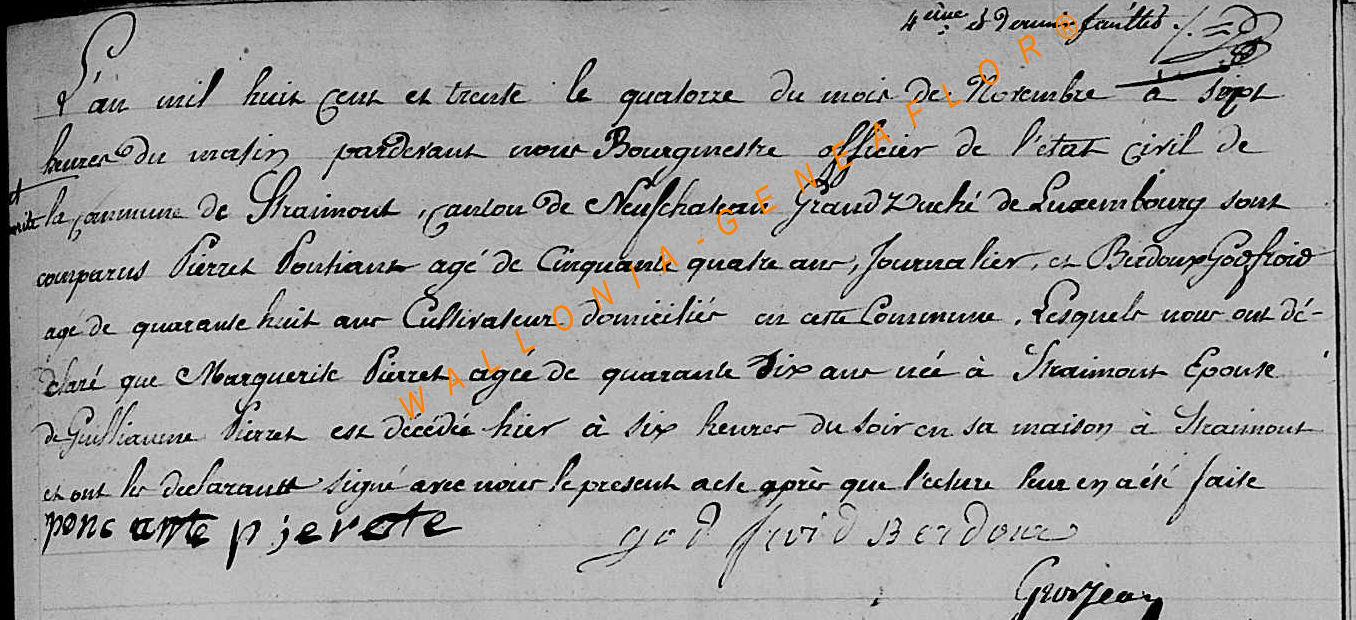 4ème et Dernier feuillet
L'an mil huit cent et trente le quatorze du mois de Novembre à sept
heures du matin pardevant nous Bourgmestre officier de l'état civil de
la commune de Straimont, canton de Neufchateau Grand Duché de Luxembourg sont
comparus Pierret Pontiant agé de Cinquante quatre ans, Journalier, et Berdoux Godfroid
agé de quarante huit ans Cultivateur domiciliés en cette Commune, Lesquels nous ont dé-
claré que Marguerite Pierret agée de quarante dix ans née à Straimont Epouse
de Guilliaume Pierret est décédée hier à six heures du soir en sa maison à Straimont
et ont les declarants signé avec nous le present acte après que lecture leur en a été faite
ponc ante pierete godfroid Berdoux
Grosjean
WALLONIA-GENEAFLOR®